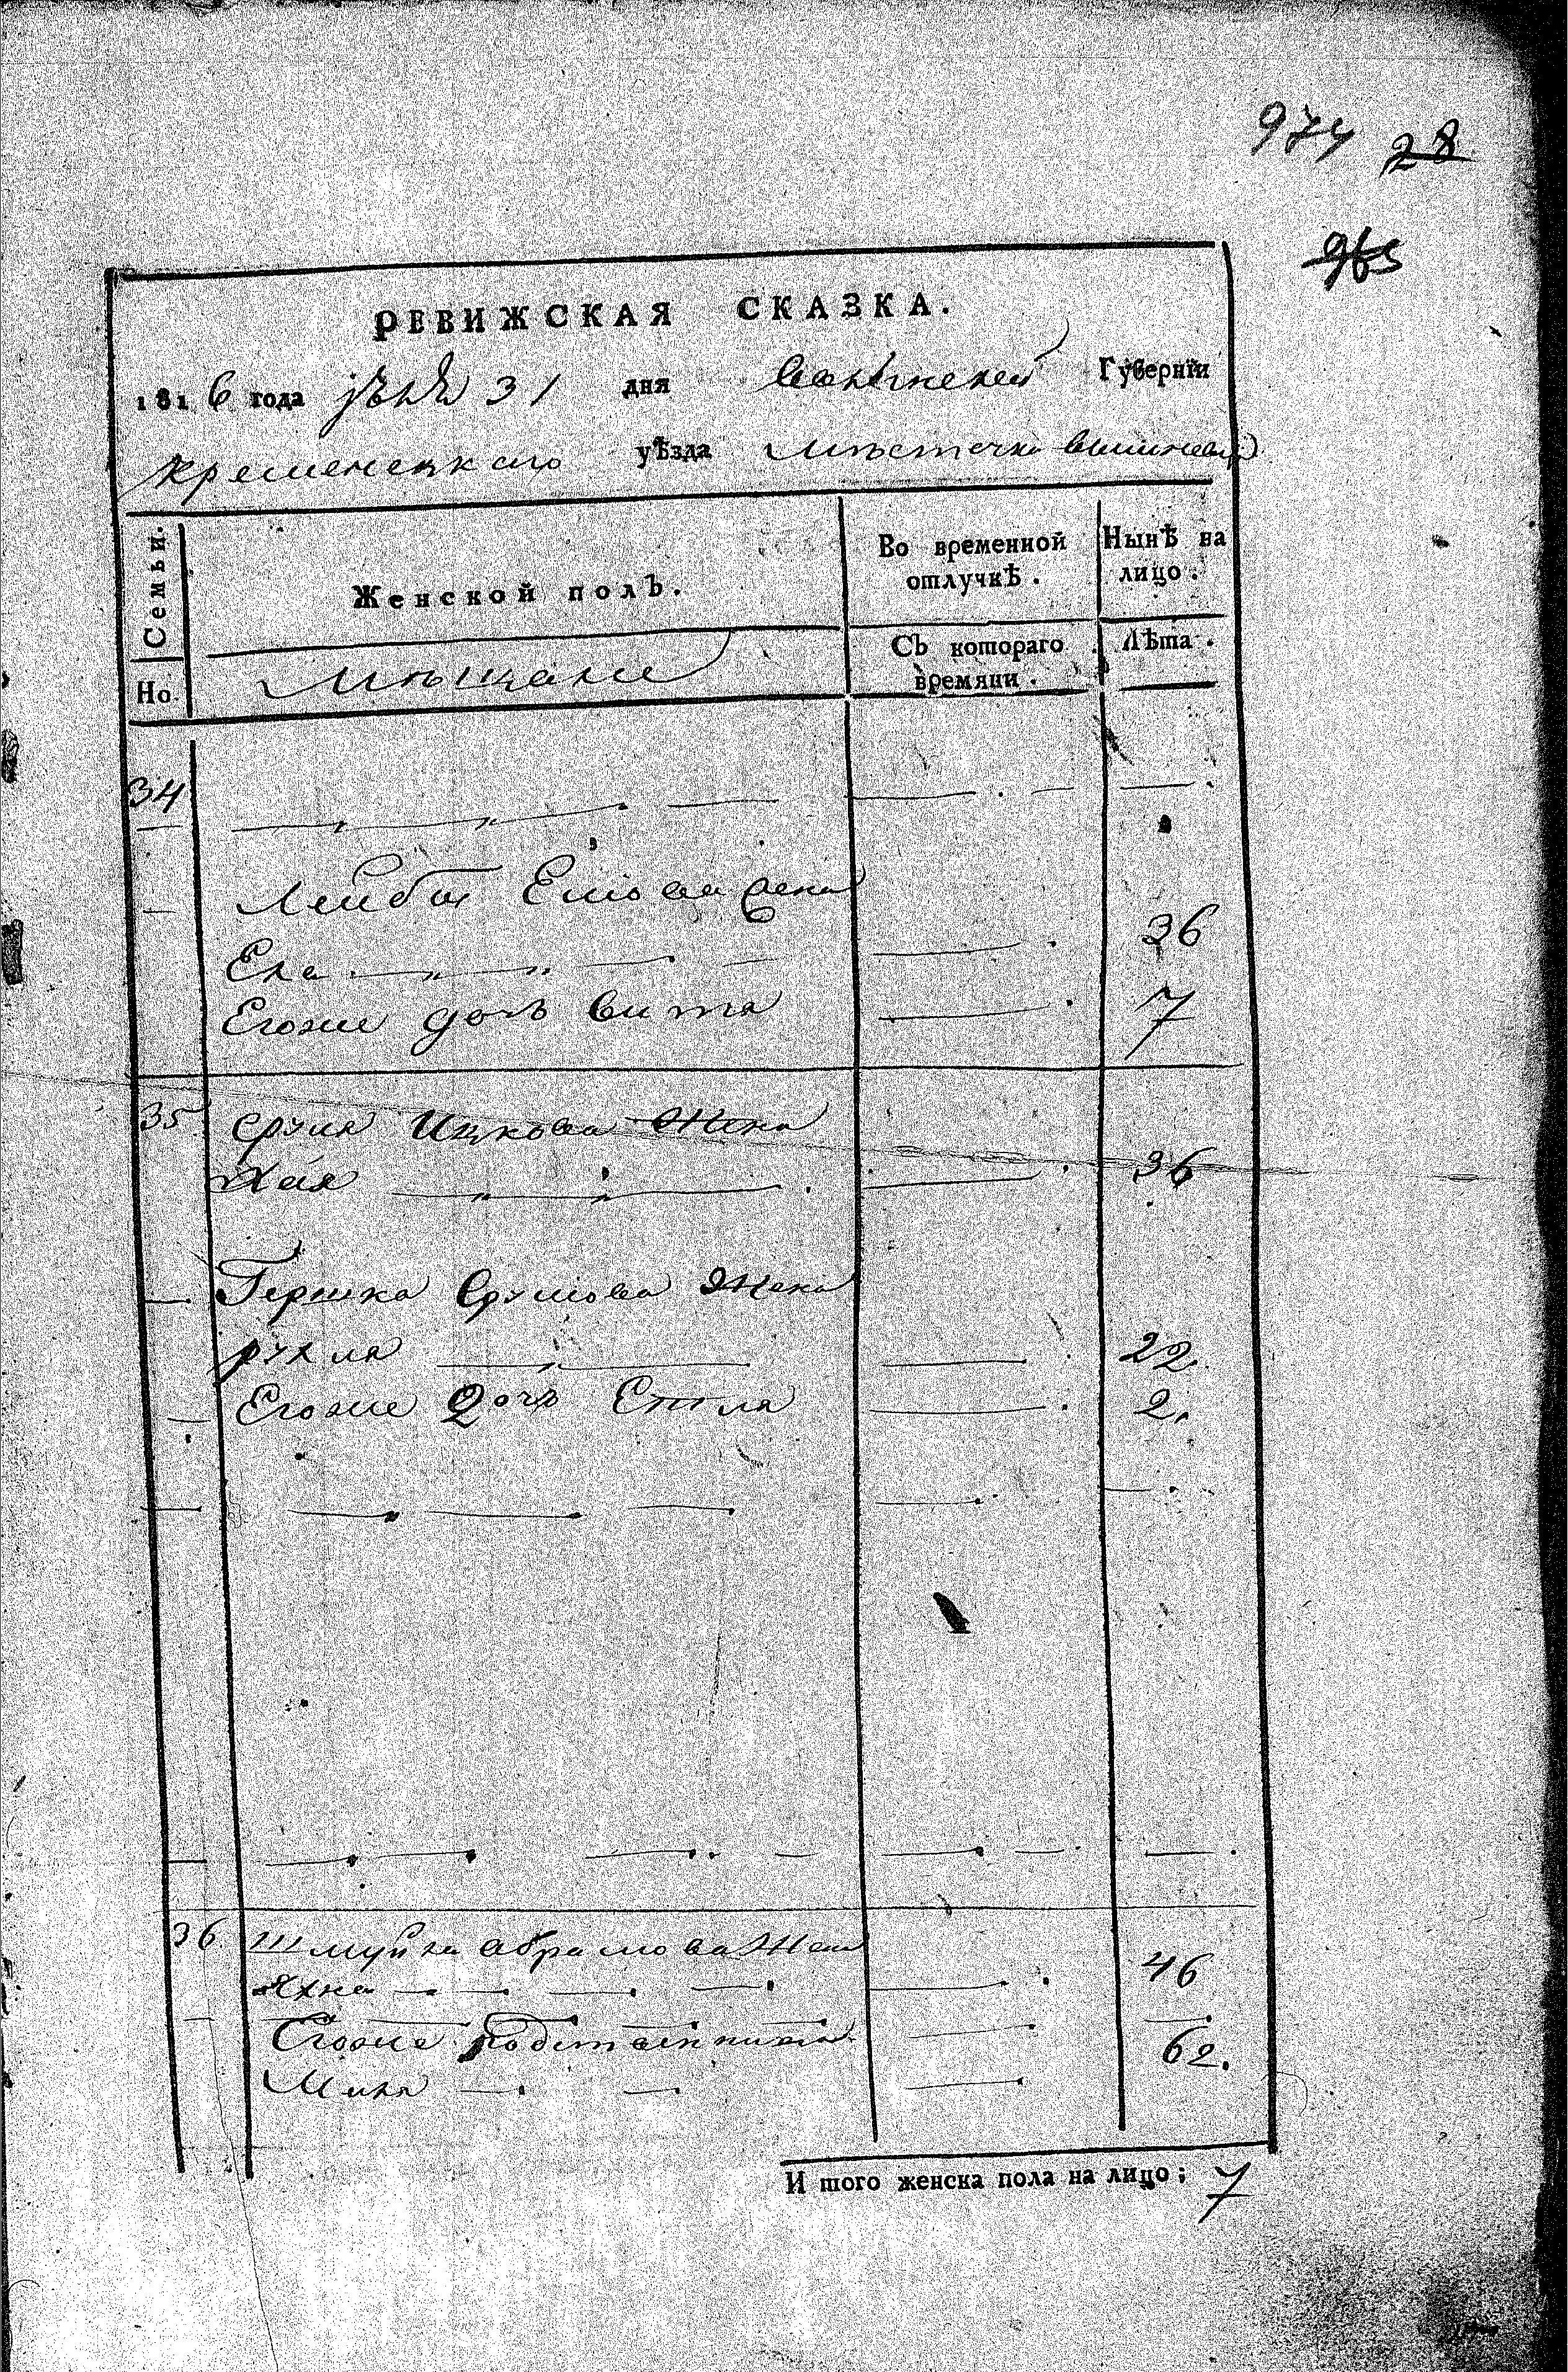 974 28
965
РЕВИЖСКАЯ СКАЗКА.
1816 года 31 дня Волынской Губерніи
кременецкаго уѣзда мѣстечка вишневца
Семьи. Женской полъ. Во временной отлучкѣ. Нынѣ на лицо.
Но. Мѣщане Съ котораго времяни. Лѣта.
34
Лейбы жена
36
Егоже дочь вита 7
35 Сруля Ицкова жена
Хая 36
Гершка Срулова жена
рухля 22
Егоже дочь Етля 2.
36 Шмуйла абрамова жена
Яхна 46
Егоже 62.
И того женска пола на лицо; 7